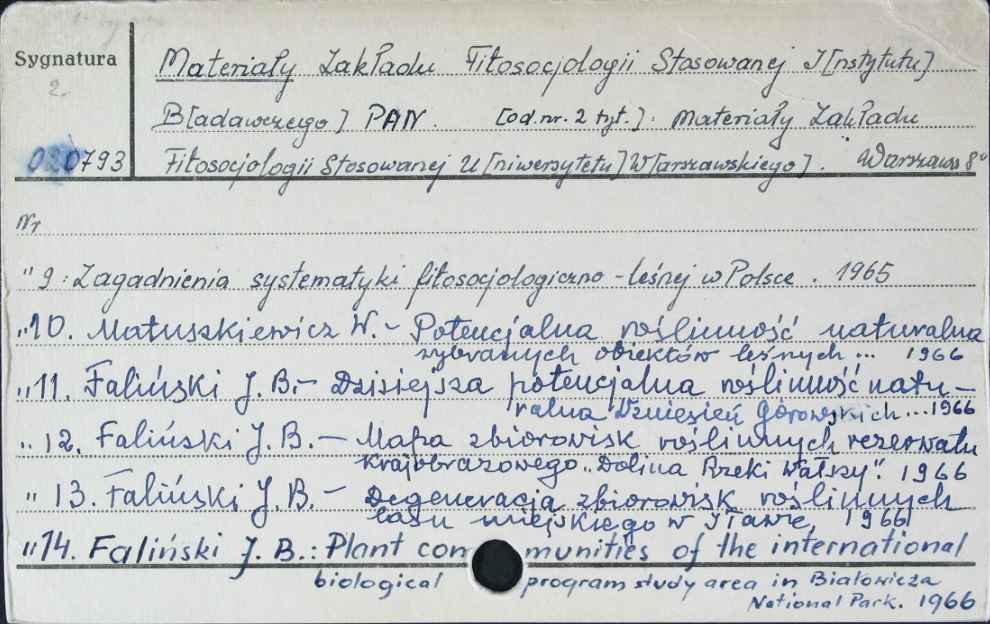 Sygnatura
2.
020793
Materiały Zakładu Fitosocjologii Stosowanej I[nstytutu]
B[adawczego] PAN. [od. nr. 2 tyt.]. Materiały Zakładu
Fitosocjologii Stosowanej U[niwersytetu] W[arszawskiego]. Warszawa 8°
Nr
" 9. Zagadnienia systematyki fitosocjologiczno-leśnej w Polsce. 1965
" 10. Matuszkiewicz W. – Potencjalna roślinność naturalna
wybranych obiektów leśnych ... 1966
" 11. Faliński J. B. – Dzisiejsza potencjalna roślinność natu–
ralna Wzniesień Górowskich ... 1966
" 12. Faliński J. B. – Mapa zbiorowisk roślinnych rezerwatu
krajobrazowego „Dolina Rzeki Wałszy". 1966
" 13. Faliński J. B. – Degeneracja zbiorowisk roślinnych
lasu miejskiego w Iławie, 1966
" 14. Faliński J. B.: Plant communities of the international
biological program study area in Białowieza
National Park. 1966